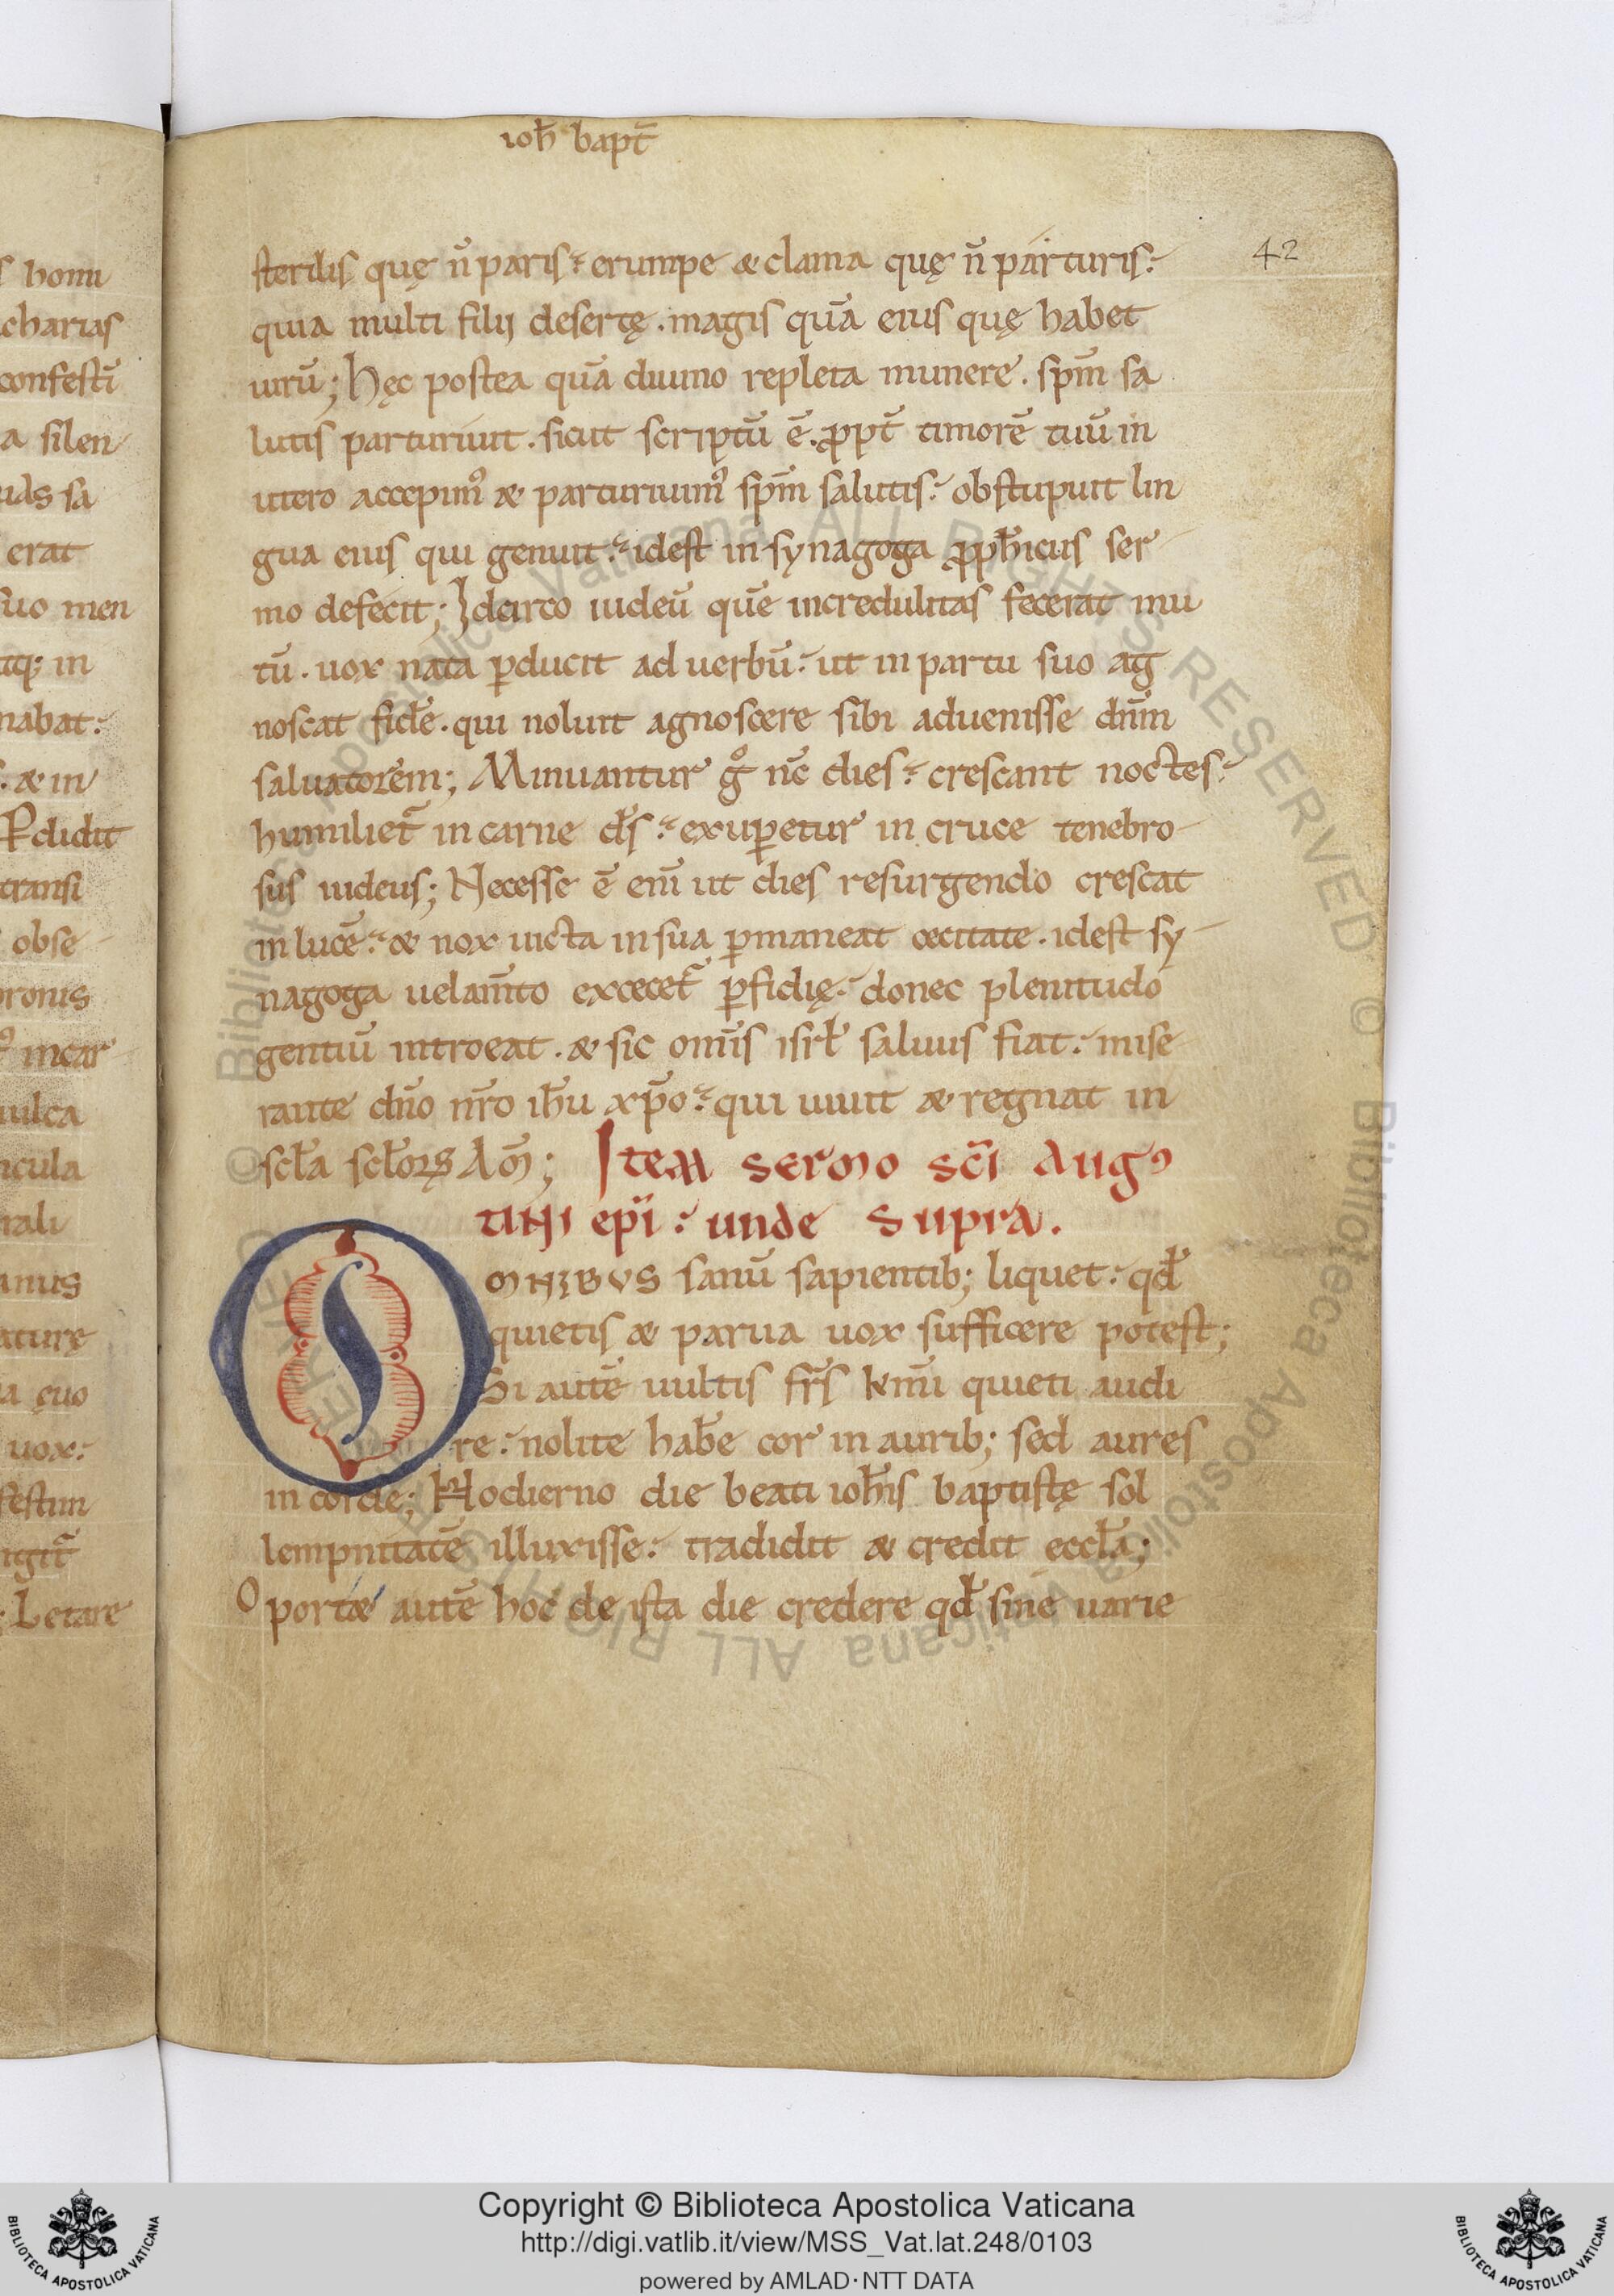 ioh̄ bapt̄
42
sterilis quę n̄ paris. erumpe & clama quę n̄ parturis.
quia multi filij desertę. magis quā eius quę habet
uirū; hęc postea quā diuino repleta munere. sp̄m sa
lutis parturiuit. sicut scriptū ē. ꝓpt̄ timorē tuū in
utero accepimꝰ & parturiuimꝰ sp̄m salutis. obstupuit lin
gua eius qui genuit. idest in synagoga ꝓph̄icus ser
mo defecit; Idcirco iudeū quē incredulitas fecerat mu
tū. uox nata ꝑducit ad uerbū. ut in partu suo ag
noscat fidē. qui noluit agnoscere sibi aduenisse dn̄m
saluatorem; Minuantur gͦ nc̄ dies. crescant noctes.
humiliet̄ in carne ds̄. exuꝑetur in cruce tenebro
sus iudeus; Necesse ē eni̅ ut dies resurgendo crescat
in lucē. & nox uicta in sua ꝑmaneat cecitate. idest sy
nagoga uelam̄to excecet̄ ꝑfidię. donec plenitudo
gentiū introeat. & sic omīs isrl̄ saluus fiat. mise
rante dn̄o nr̄o ih̄u xp̄o. qui uiuit & regnat in
scl̄a scl̄oꝝ Am̄; Item sermo sc̄i Augꝰ
tini ep̄i: unde supra.
OMNIBUS sanū sapientib; liquet. qd̄
quietis & parua uox sufficere potest;
Si autē uultis fr̄s km̄i quieti audi
re. nolite hab̄e cor in aurib; sed aures
in corde; Hodierno die beati ioh̄is baptistę sol
lempnitatē illuxisse. tradidit & credit eccl̄a;
Oport& autē hoc de ista die credere qd̄ sine uarie
s homi
charias
confestī
a silen
erat
suo men
atq; in
nabat.
. & in
Ꝑdidit
transi
obse
incar
uulca
anus
aturę
a ęuo
uox.
festiu
igit̄
. Letare
© Biblioteca Apostolica Vaticana ALL RIGHTS RESERVED
© Biblioteca Apostolica Vaticana ALL RIGHTS RESERVED
Copyright © Biblioteca Apostolica Vaticana
http://digi.vatlib.it/view/MSS_Vat.lat.248/0103
powered by AMLAD·NTT DATA
BIBLIOTECA APOSTOLICA VATICANA
BIBLIOTECA APOSTOLICA VATICANA